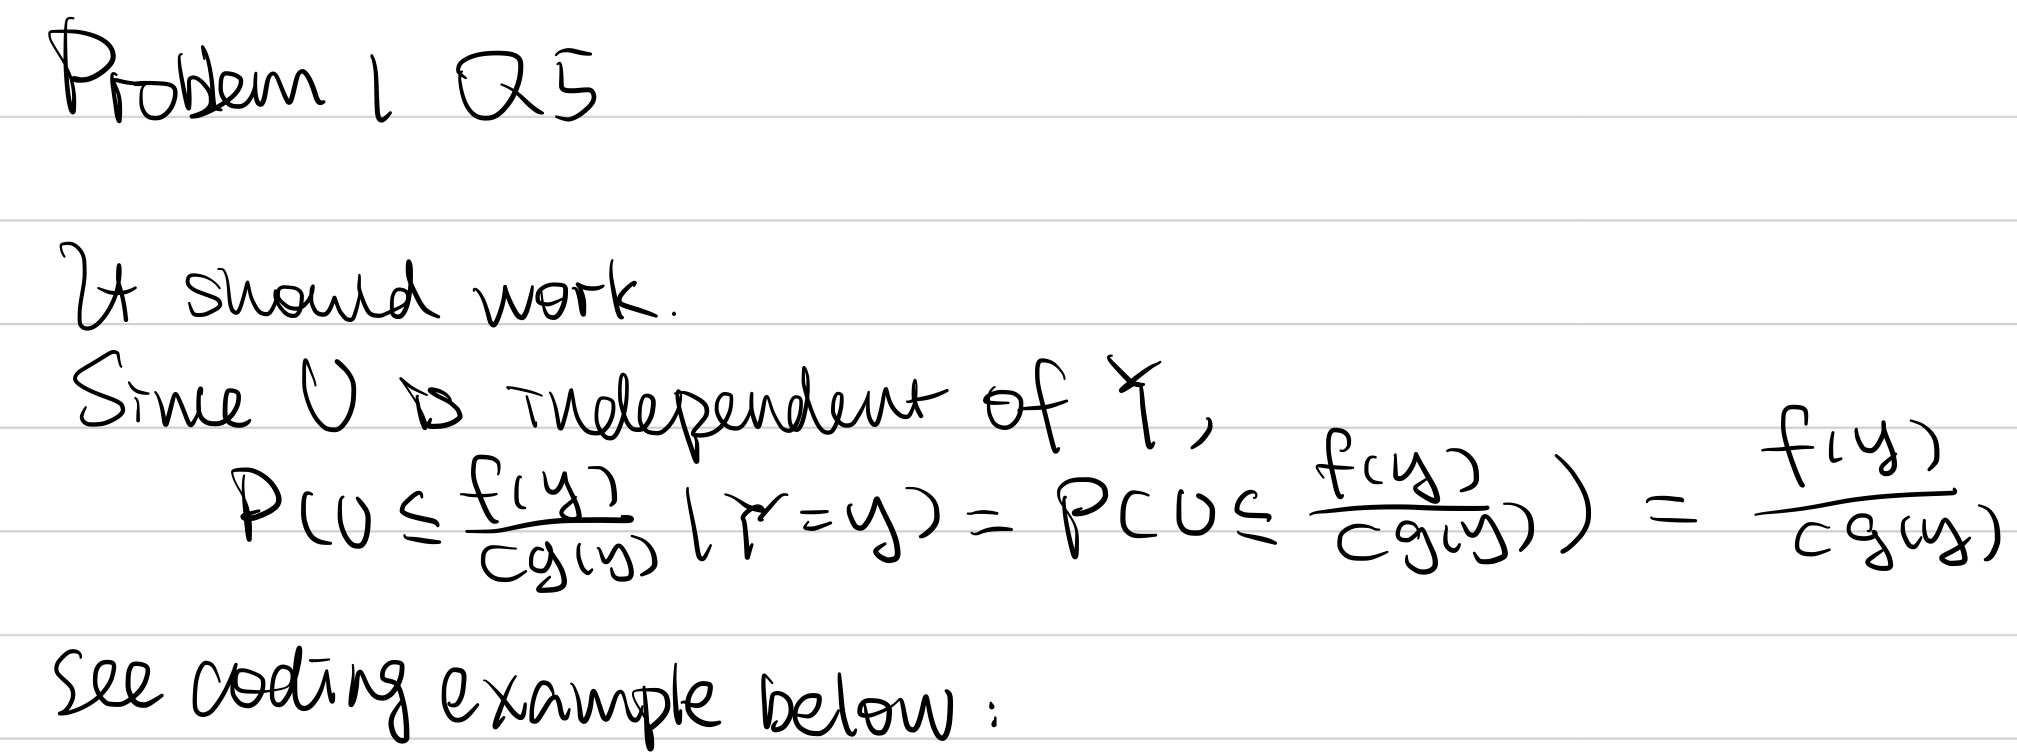 Problem 1 Q5
It should work.
Since U is independent of Y,
P(U ≤ f(y)/cg(y) | Y=y) = P(U ≤ f(y)/cg(y)) = f(y)/cg(y)
See coding example below: